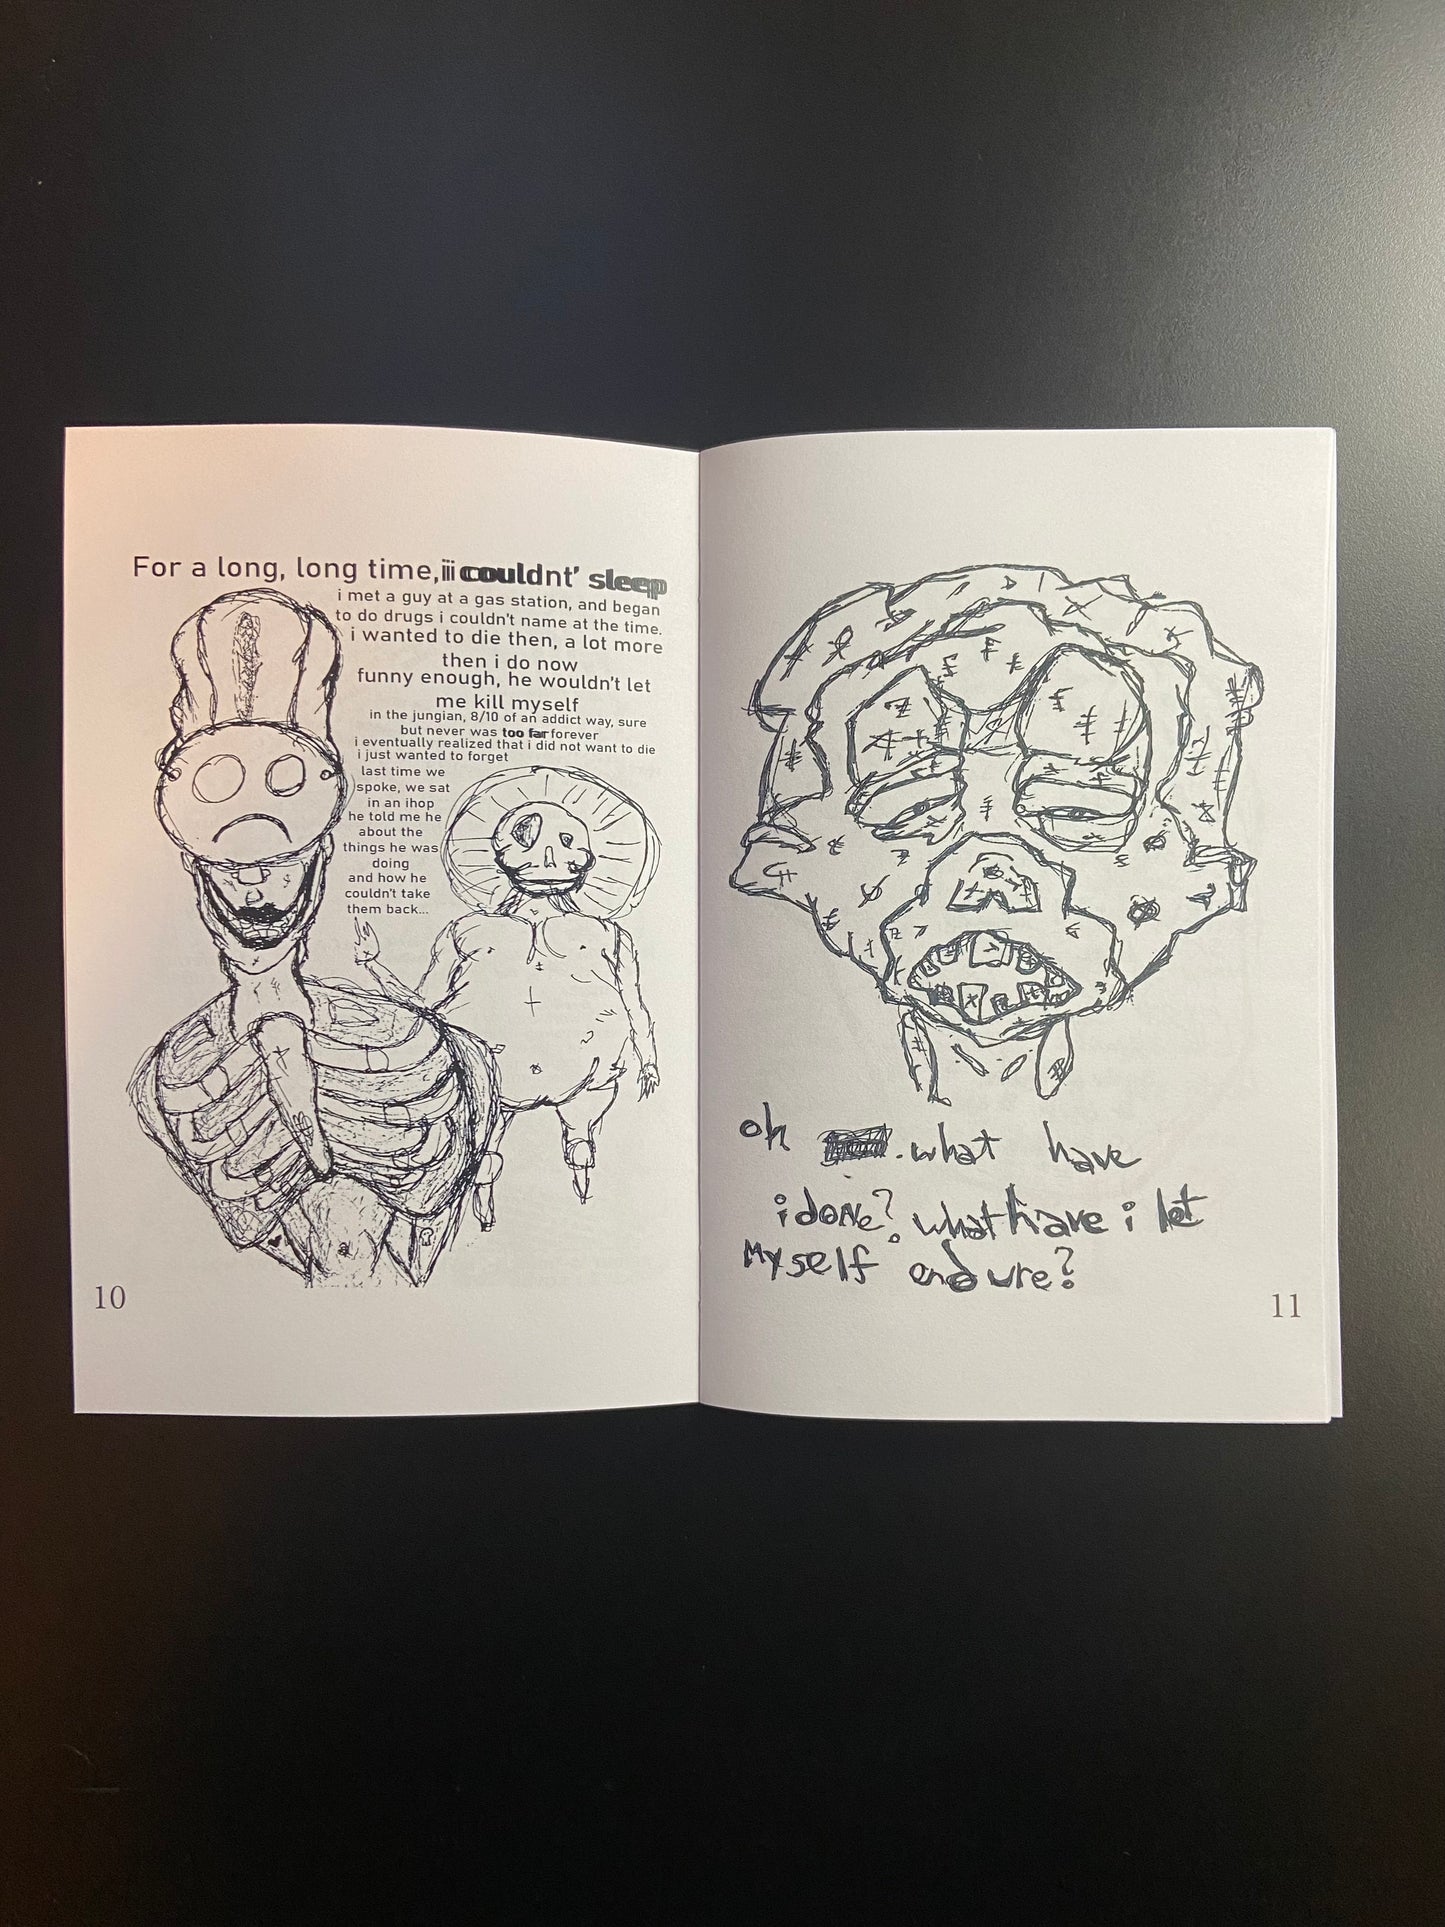 For a long, long time, iii couldnt' sleep
i met a guy at a gas station, and began
to do drugs i couldn't name at the time.
i wanted to die then, a lot more
then i do now
funny enough, he wouldn't let
me kill myself
in the jungian, 8/10 of an addict way, sure
but never was too far forever
i eventually realized that i did not want to die
i just wanted to forget
last time we
spoke, we sat
in an ihop
he told me he
about the
things he was
doing
and how he
couldn't take
them back...
10
oh . what have
i done? what have i let
myself endure?
11